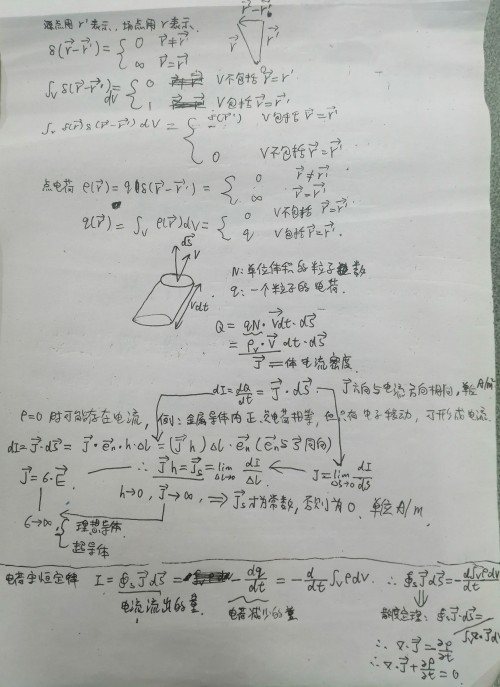 源点用r'表示, 场点用r表示.
r⃗-r⃗'
r⃗ r⃗'
0
δ(r⃗-r⃗')={ 0 r⃗≠r⃗'
∞ r⃗=r⃗'
∫v δ(r⃗-r⃗')dV={ 0 V不包括r⃗=r⃗'
1 V包括r⃗=r⃗'
∫v f(r⃗)δ(r⃗-r⃗')dV={ f(r⃗') V包括r⃗=r⃗'
0 V不包括r⃗=r⃗'
点电荷 ρ(r⃗)=qδ(r⃗-r⃗')={ 0 r⃗≠r⃗'
∞ r⃗=r⃗'
q(r⃗)=∫v ρ(r⃗)dV={ 0 V不包括r⃗=r⃗'
q V包括r⃗=r⃗'.
dS⃗
V
Vdt
N:单位体积的粒子数
q:一个粒子的电荷.
Q=qN·V⃗dt·dS⃗
=ρv·V⃗ dt·dS⃗
J⃗=体电流密度.
dI=dQ/dt=J⃗·dS⃗ J⃗方向与电流方向相同,单位A/m²
ρ=0时可能存在电流, 例:金属导体内正负电荷相等, 但只有电子移动, 可形成电流
dI=J⃗·dS⃗=J⃗·e⃗n·h·Δl=(J⃗h)Δl·e⃗n(e⃗n与J⃗同向)
J⃗=σ·E⃗ ∴J⃗h=J⃗s=lim Δl→0 dI/Δl J=lim ΔS→0 dI/dS
h→0, J⃗→∞, ⟹ J⃗s才为常数, 否则为0. 单位A/m.
σ→∞{ 理想导体
超导体
电荷守恒定律 I=∮s J⃗dS⃗= -dq/dt = -d/dt ∫vρdV ∴∮s J⃗dS⃗=-d∫vρdV/dt
电流流出的量 电荷减少的量
散度定理: ∮s J⃗·dS⃗=∫v∇·J⃗dV
∴∇·J⃗=∂ρ/∂t
∴∇·J⃗+∂ρ/∂t=0.